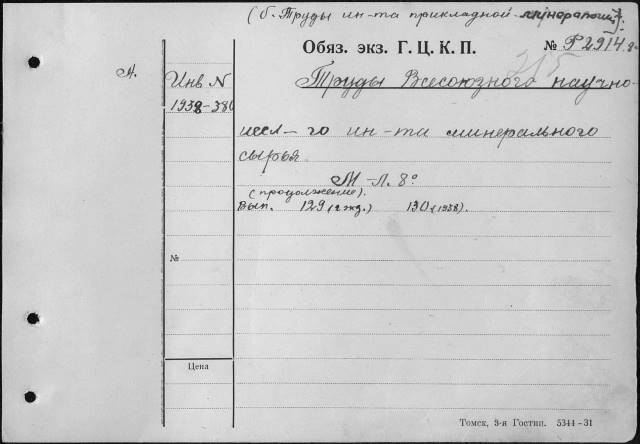 (б. Труды ин-та прикладной минералогии).
Обяз. экз. Г. Ц. К. П. № Р2914.8-
215
А.
Инв N Труды Всесоюзного научно-
1938-380
иссл-го ин-та минерального
сырья.
М-Л. 8°
(продолжение).
Вып. 129 (2жд.) 130 (1938).
№
Цена
Томск, 3-я Гостип. 5344-31